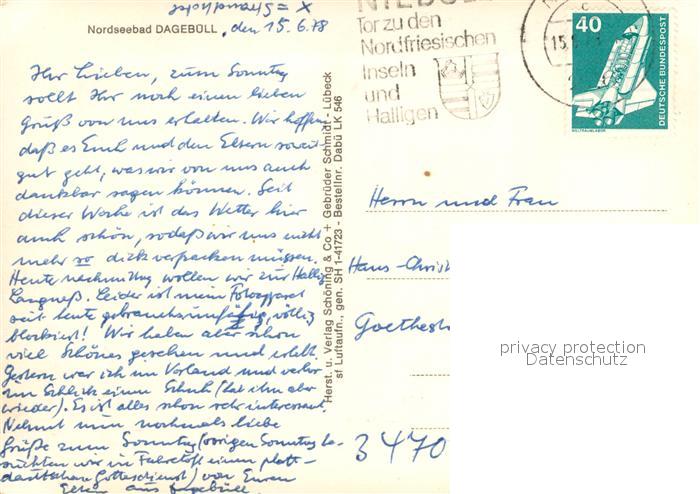 x = Strandhotel
Nordseebad DAGEBÜLL, den 15.6.78
Ihr Lieben, zum Sonntag
sollt Ihr noch einen lieben
Gruß von uns erhalten. Wir hoffen,
daß es Euch und den Eltern soweit
gut geht, was wir von uns auch
dankbar sagen können. Seit
dieser Woche ist das Wetter hier
auch schön, sodaß wir uns nicht
mehr so dick verpacken müssen.
Heute nachmittag wollen wir zur Hallig
Langneß. Leider ist mein Fotoapparat
seit heute gebrauchsunfähig, völlig
blockiert! Wir haben aber schon
viel Schönes gesehen und erlebt.
Gestern war ich im Vorland und verlor
im Schlick einen Schuh (hat ihn aber
wieder). Es ist alles schon sehr interessant.
Nehmt nun nochmals liebe
Grüße zum Sonntag (vorigen Sonntag be-
suchten wir in Fahretoft einen platt-
deutschen Gottesdienst) von Euren
Eltern aus Dagebüll.
Herst. u. Verlag Schöning & Co + Gebrüder Schmidt - Lübeck
sf Luftaufn., gen. SH 1-41723 - Bestellnr. Dabu LK 546
Tor zu den
Nordfriesischen
Inseln
und
Halligen
15.
40
DEUTSCHE BUNDESPOST
WELTRAUMLABOR
Herrn und Frau
Hans-Christ
Goethestr
3470
privacy protection
Datenschutz